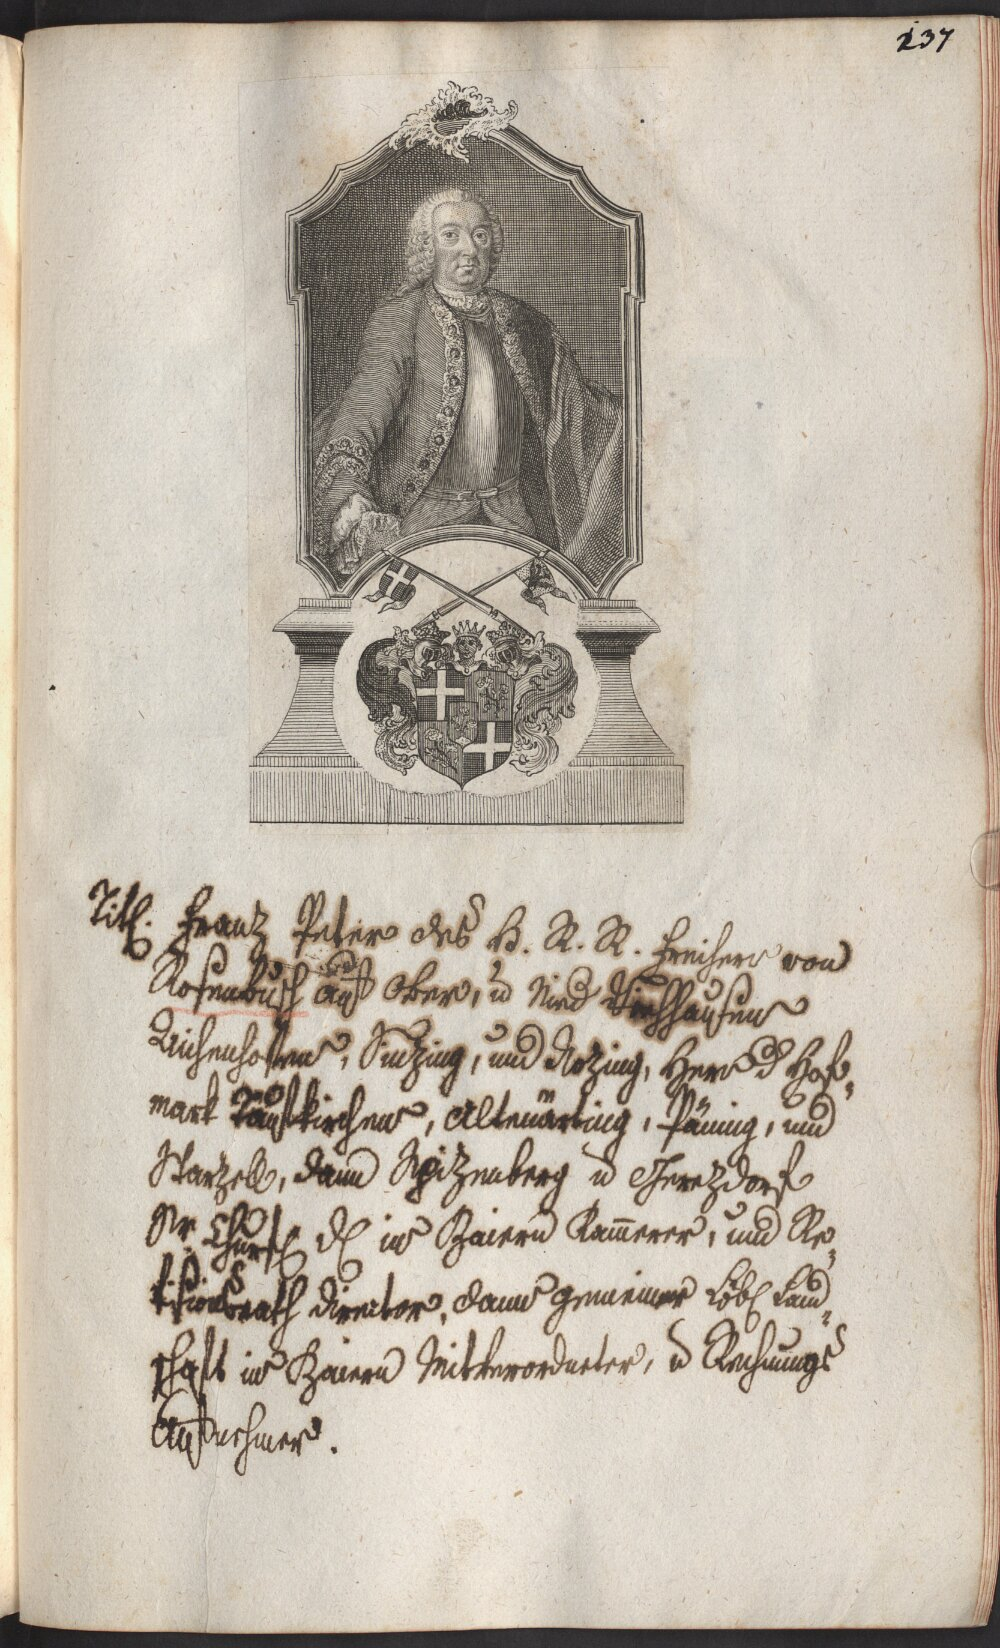 237
Titl. Franz Peter des H. R. R. Freiherr von
Rosenbusch auf Ober, u Nied Viehhausen
Eichenhofen, Sinzing, und Notzing, Herr d Hof-
mark Taufkirchen, Altenärting, Päning, und
Starzell, dann Spizenberg u
Sr Churfl dl in Baiern Kam̄erer, und Re-
visionsrath Director, dann gemeiner Löbl Land-
schaft in Baiern Mitverordneter, u Rechnungs
Aufnehmer.